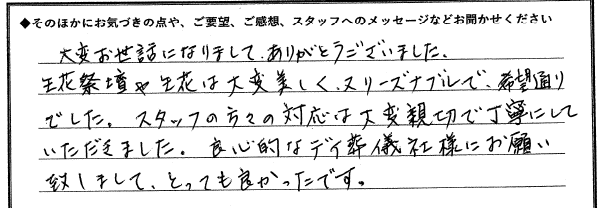 ◆そのほかにお気づきの点や、ご要望、ご感想、スタッフへのメッセージなどお聞かせください
大変お世話になりまして、ありがとうございました。
生花祭壇や生花は大変美しく、又リーズナブルで、希望通り
でした。スタッフの方々の対応は大変親切で丁寧にして
いただきました。良心的なデイ葬儀社様にお願い
致しまして、とっても良かったです。